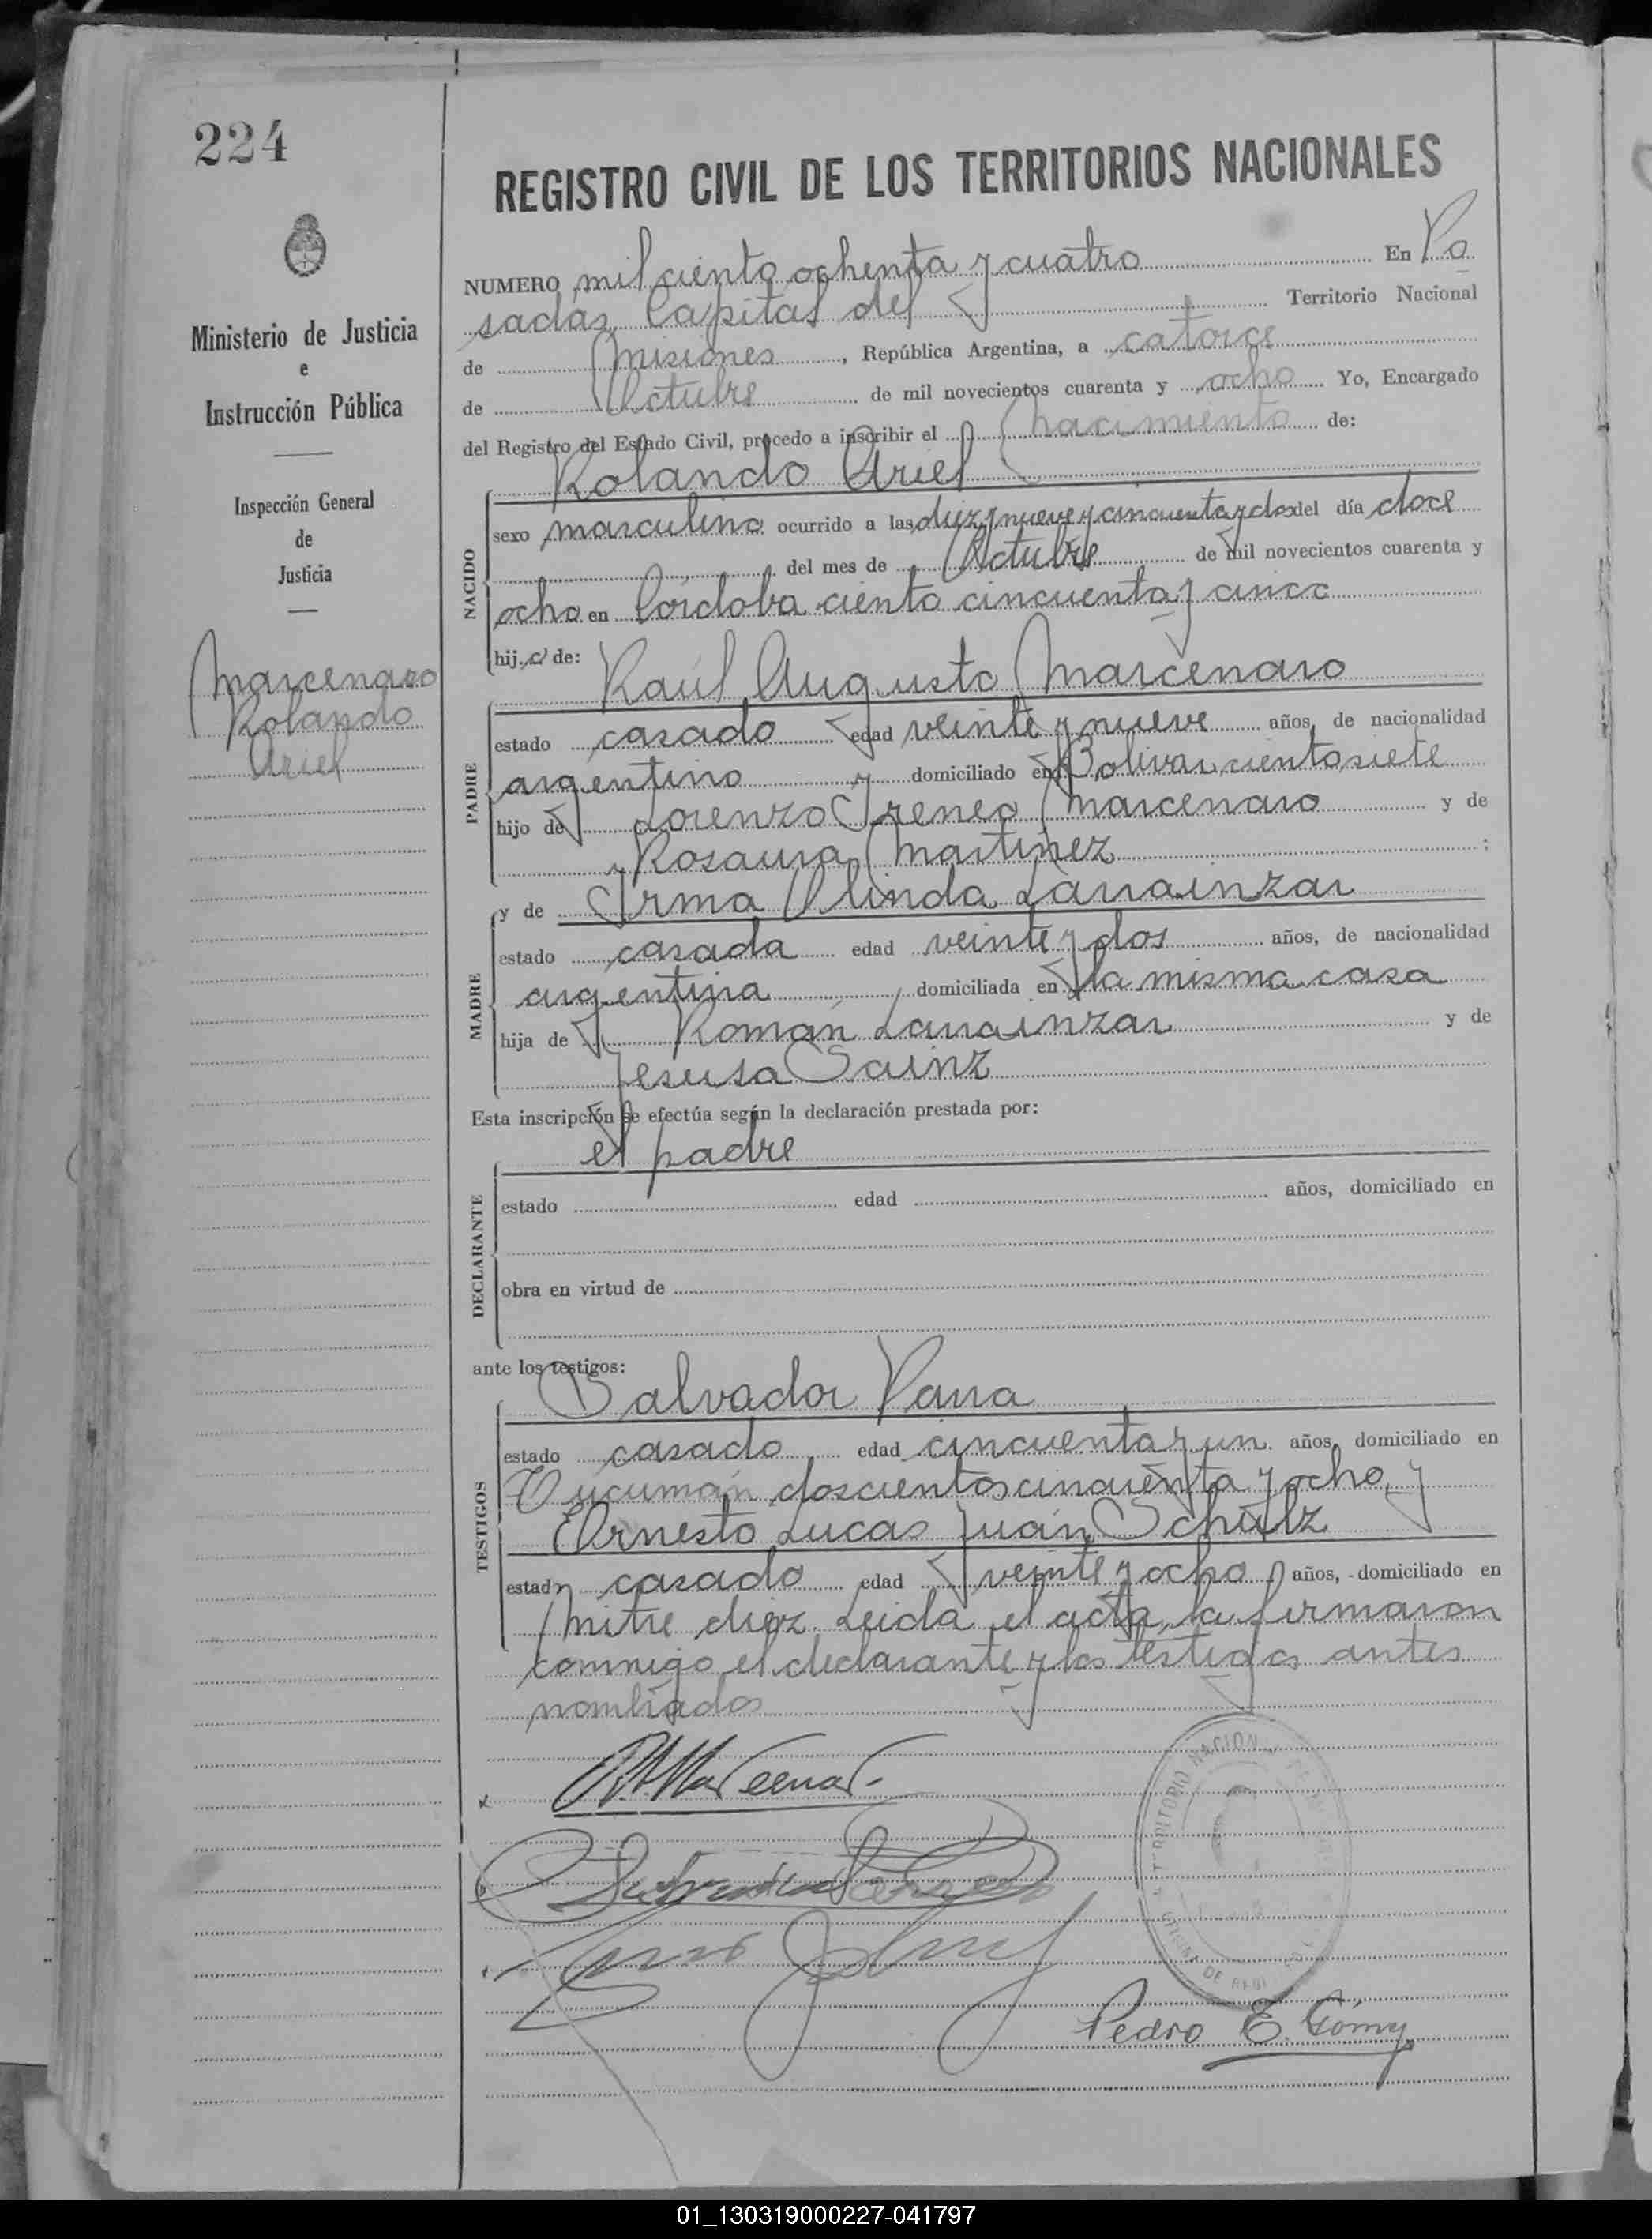 224
Ministerio de Justicia
e
Instrucción Pública
Inspección General
de
Justicia
Marcenaro
Rolando
Ariel
REGISTRO CIVIL DE LOS TERRITORIOS NACIONALES
NUMERO mil ciento ochenta y cuatro En Po
sadas, Capital del Territorio Nacional
de Misiones, República Argentina, a catorce
de Octubre de mil novecientos cuarenta y ocho Yo, Encargado
del Registro del Estado Civil, procedo a inscribir el nacimiento de:
Rolando Ariel
NACIDO
sexo masculino ocurrido a las diez y nueve y cincuenta y dos del día doce
del mes de Octubre de mil novecientos cuarenta y
ocho en Córdoba ciento cincuenta y cinco
hij o de:
Raúl Augusto Marcenaro
PADRE
estado casado edad veinte y nueve años, de nacionalidad
argentino domiciliado en Bolivar ciento siete
hijo de Lorenzo Ireneo Marcenaro y de
Rosaura Martinez ;
y de Irma Olinda Larrainzar
MADRE
estado casada edad veinte y dos años, de nacionalidad
argentina domiciliada en la misma casa
hija de Román Larrainzar y de
Jesusa Sainz
Esta inscripción se efectúa según la declaración prestada por:
el padre
DECLARANTE
estado edad años, domiciliado en
obra en virtud de
ante los testigos:
Salvador Parra
TESTIGOS
estado casado edad cincuenta y un años, domiciliado en
Tucumán doscientos cincuenta y ocho, y
Ernesto Lucas Juan Schulz
estado casado edad veinte y ocho años, domiciliado en
Mitre diez. Leida el acta, la firmaron
conmigo el declarante y los testigos antes
nombrados
Pedro E. Gómez
01_130319000227-041797